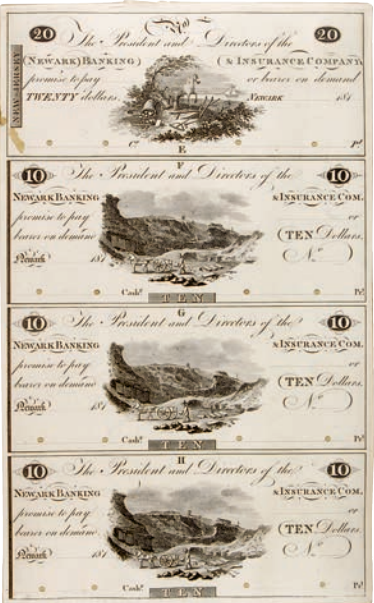 No
20 The President and Directors of the 20
NEW-JERSEY
(NEWARK) BANKING) (& INSURANCE COMPANY,
promise to pay or bearer on demand
TWENTY dollars. NEWARK 181
Cr. Pt.
E
F
10 The President and Directors of the 10
NEWARK BANKING & INSURANCE COM.
promise to pay or
bearer on demand (TEN Dollars.
Newark 181 No.
Cashr. TEN Pt.
G
10 The President and Directors of the 10
NEWARK BANKING & INSURANCE COM.
promise to pay or
bearer on demand (TEN Dollars.
Newark 181 No.
Cashr. TEN Pt.
H
10 The President and Directors of the 10
NEWARK BANKING & INSURANCE COM.
promise to pay or
bearer on demand (TEN Dollars.
Newark 181 No.
Cashr. TEN Pt.